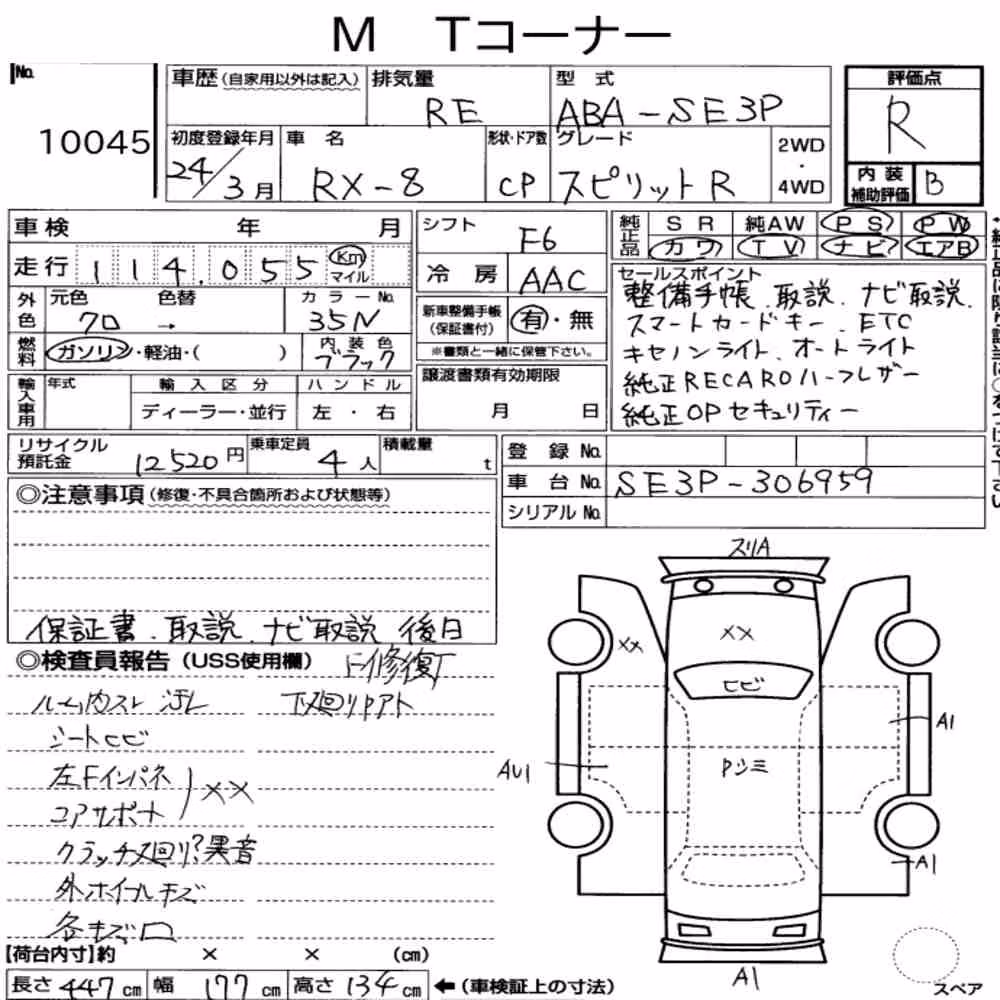 M Tコーナー
No.
10045
車歴(自家用以外は記入)
排気量
RE
型 式
ABA-SE3P
評価点
R
初度登録年月
24/3月
車 名
RX-8
形状・ドア数
CP
グレード
スピリットR
2WD
・
4WD
内 装
補助評価
B
車検 年 月
走行 114,055 Km マイル
外色
元色 色替
カラーNo.
35N
燃料
ガソリン・軽油・( )
内 装 色
ブラック
輸入車用
年式
輸 入 区 分
ディーラー・並行
ハ ン ド ル
左 ・ 右
シフト
F6
冷 房
AAC
新車整備手帳
(保証書付)
有・無
※書類と一緒に保管下さい。
譲渡書類有効期限
月 日
純正品
SR 純AW PS PW
カワ TV ナビ エアB
セールスポイント
整備手帳、取説、ナビ取説、
スマートカードキー、ETC
キセノンライト、オートライト
純正RECAROハーフレザー
純正OPセキュリティー
リサイクル
預託金
12520円
乗車定員
4人
積載量
t
登 録 No.
車 台 No.
SE3P-306959
シリアル No.
◎注意事項(修復・不具合箇所および状態等)
保証書、取説、ナビ取説 後日
◎検査員報告(USS使用欄)
F修復T
ルーム内スレ 汚レ
シートヒビ
左Fインパネ
コアサポート
××
外ホイールキズ
各キズ凹
【荷台内寸】約 × × (cm)
長さ 447 cm 幅 177 cm 高さ 134 cm ←(車検証上の寸法)
スリA
××
××
ヒビ
A1
AU1
Pシミ
A1
A1
スペア